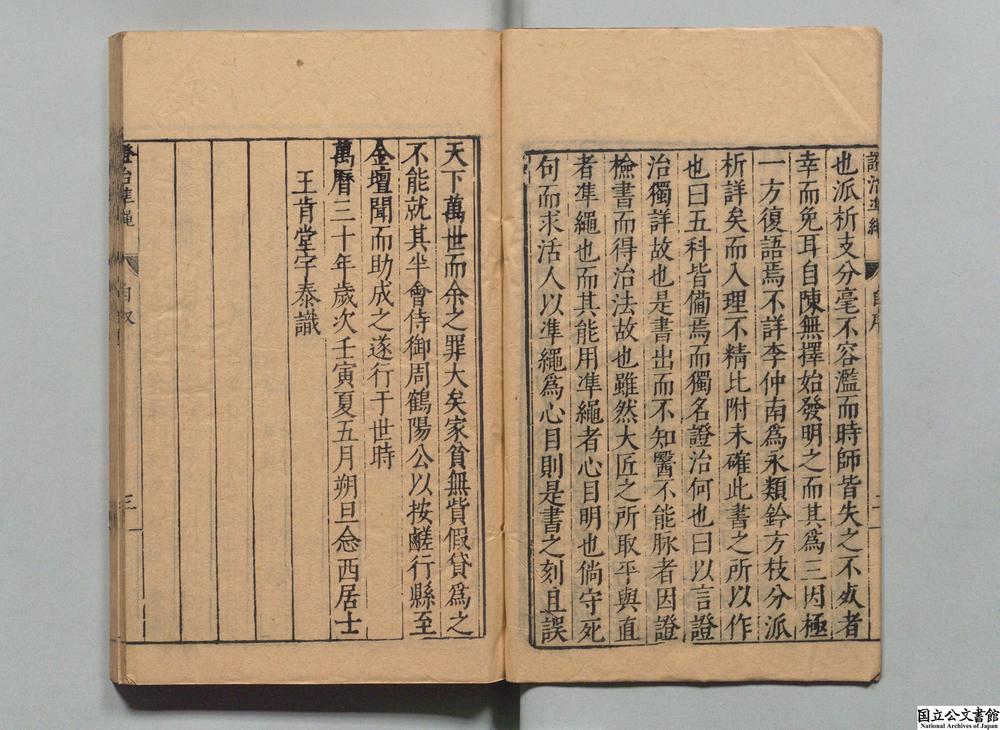 也派析支分毫不容濫而時師皆失之不死者
幸而免耳自陳無擇始發明之而其爲三因極
一方復語焉不詳李仲南爲永類鈐方枝分派
析詳矣而入理不精比附未確此書之所以作
也曰五科皆備焉而獨名證治何也曰以言證
治獨詳故也是書出而不知醫不能脉者因證
檢書而得治法故也雖然大匠之所取平與直
者凖繩也而其能用凖繩者心目明也倘守死
句而求活人以凖繩爲心目則是書之刻且誤
天下萬世而余之罪大矣家貧無貲假貸爲之
不能就其半會侍御周鶴陽公以按鹺行縣至
金壇聞而助成之遂行于世時
萬曆三十年歲次壬寅夏五月朔旦念西居士
王肯堂宇泰識
證治準繩
自叙
三
国立公文書館
National Archives of Japan